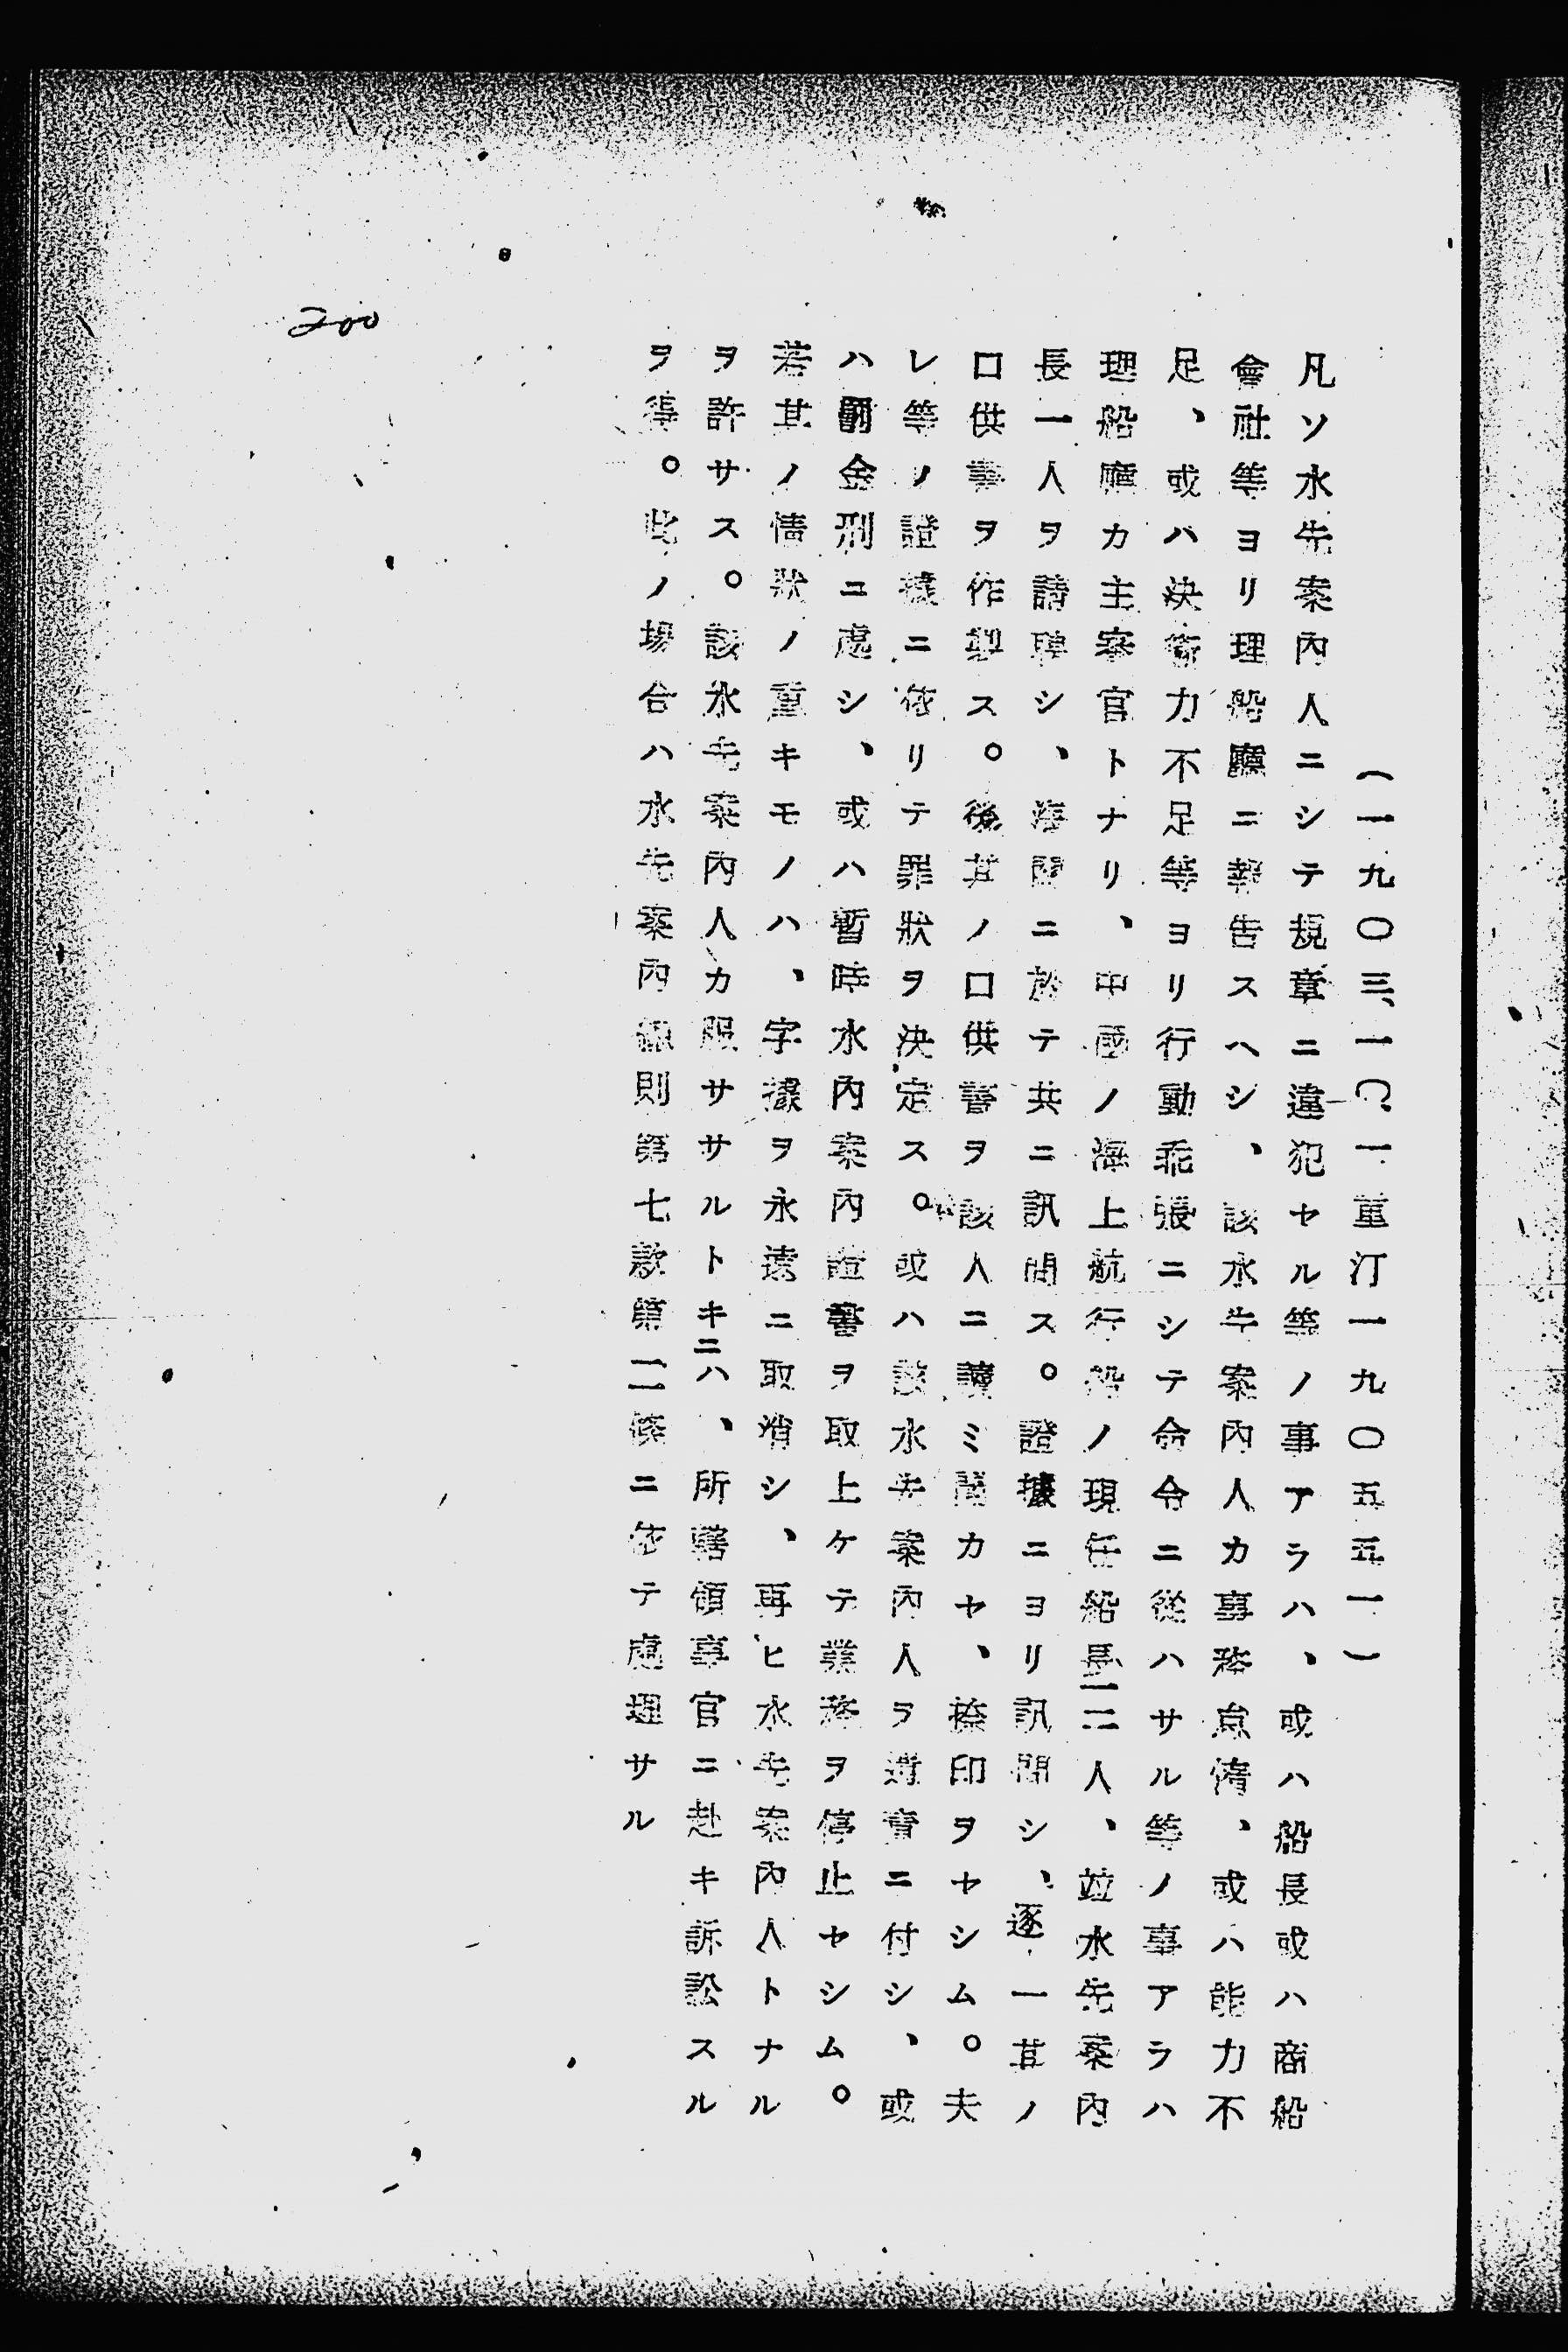 (一九〇三、一〇、一重汀一九〇五五一)
凡ソ水先案內人ニシテ規章ニ違犯セル等ノ事アラハ、或ハ船長或ハ商船
會社等ヨリ理船廳ニ報告スヘシ、該水先案內人カ事務怠惰、或ハ能力不
足、或ハ決斷力不足等ヨリ行動乖張ニシテ命令ニ從ハサル等ノ事アラハ
理船廳カ主審官トナリ、中國ノ海上航行船ノ現任船長一二人、竝水先案內
長一人ヲ請聘シ、海關ニ於テ共ニ訊問ス。證據ニヨリ訊問シ、逐一其ノ
口供書ヲ作製ス。後其ノ口供書ヲ該人ニ讀ミ聞カセ、捺印ヲセシム。夫
レ等ノ證據ニ依リテ罪狀ヲ決定ス。或ハ該水先案內人ヲ譴責ニ付シ、或
ハ罰金刑ニ處シ、或ハ暫時水內案內證書ヲ取上ケテ業務ヲ停止セシム。
若其ノ情狀ノ重キモノハ、字據ヲ永遠ニ取消シ、再ヒ水先案內人トナル
ヲ許サス。該水先案內人カ服ササルトキニハ、所轄領事官ニ赴キ訴訟スル
ヲ得。此ノ場合ハ水先案內總則第七款第二條ニ依テ處理サル
200